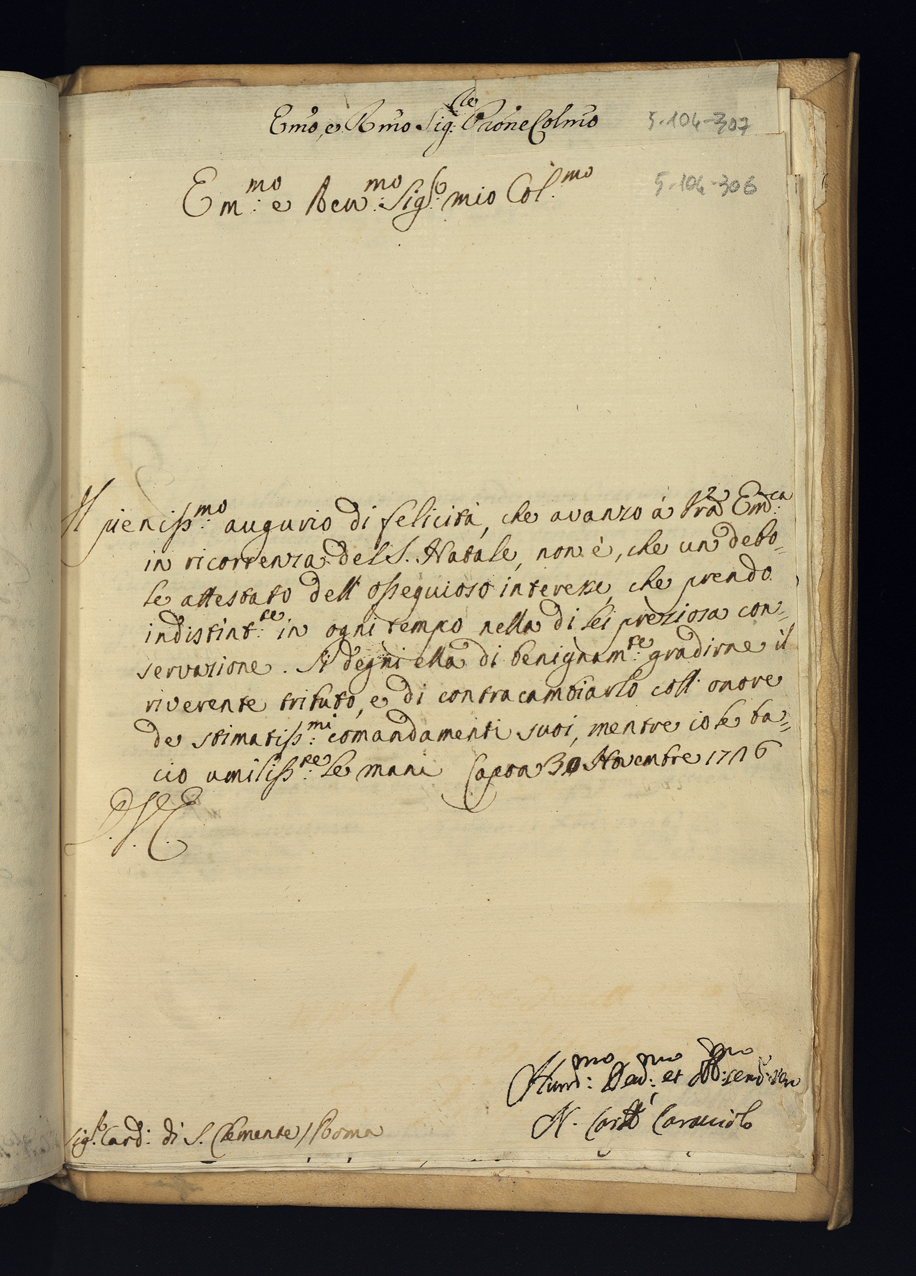 Emõ, e Rmõ Sig.re Prõne Colmõ
5-104-307
Em.mo e Reu.mo Sig.re mio Col.mo
5-104-306
Il pieniss.mo augurio di felicità, che avanzo à Vrã Em.ca
in ricorrenza del S. Natale, non è, che un debo=
le attestato dell' ossequioso interesse, che prendo
indistint.te in ogni tempo nella di lei preziosa con=
servazione. Si degni ella di benignam.te gradirne il
riverente tributo, e di contracambiarlo coll' onore
de stimatiss.mi comandamenti suoi, mentre io le ba=
cio umiliss.te le mani Capoa 30 Novembre 1726
D. V. E.
Hum.mo Deu.mo et Obb.mo
N. Card. Caracciolo
Sig.re Card: di S. Clemente / Roma